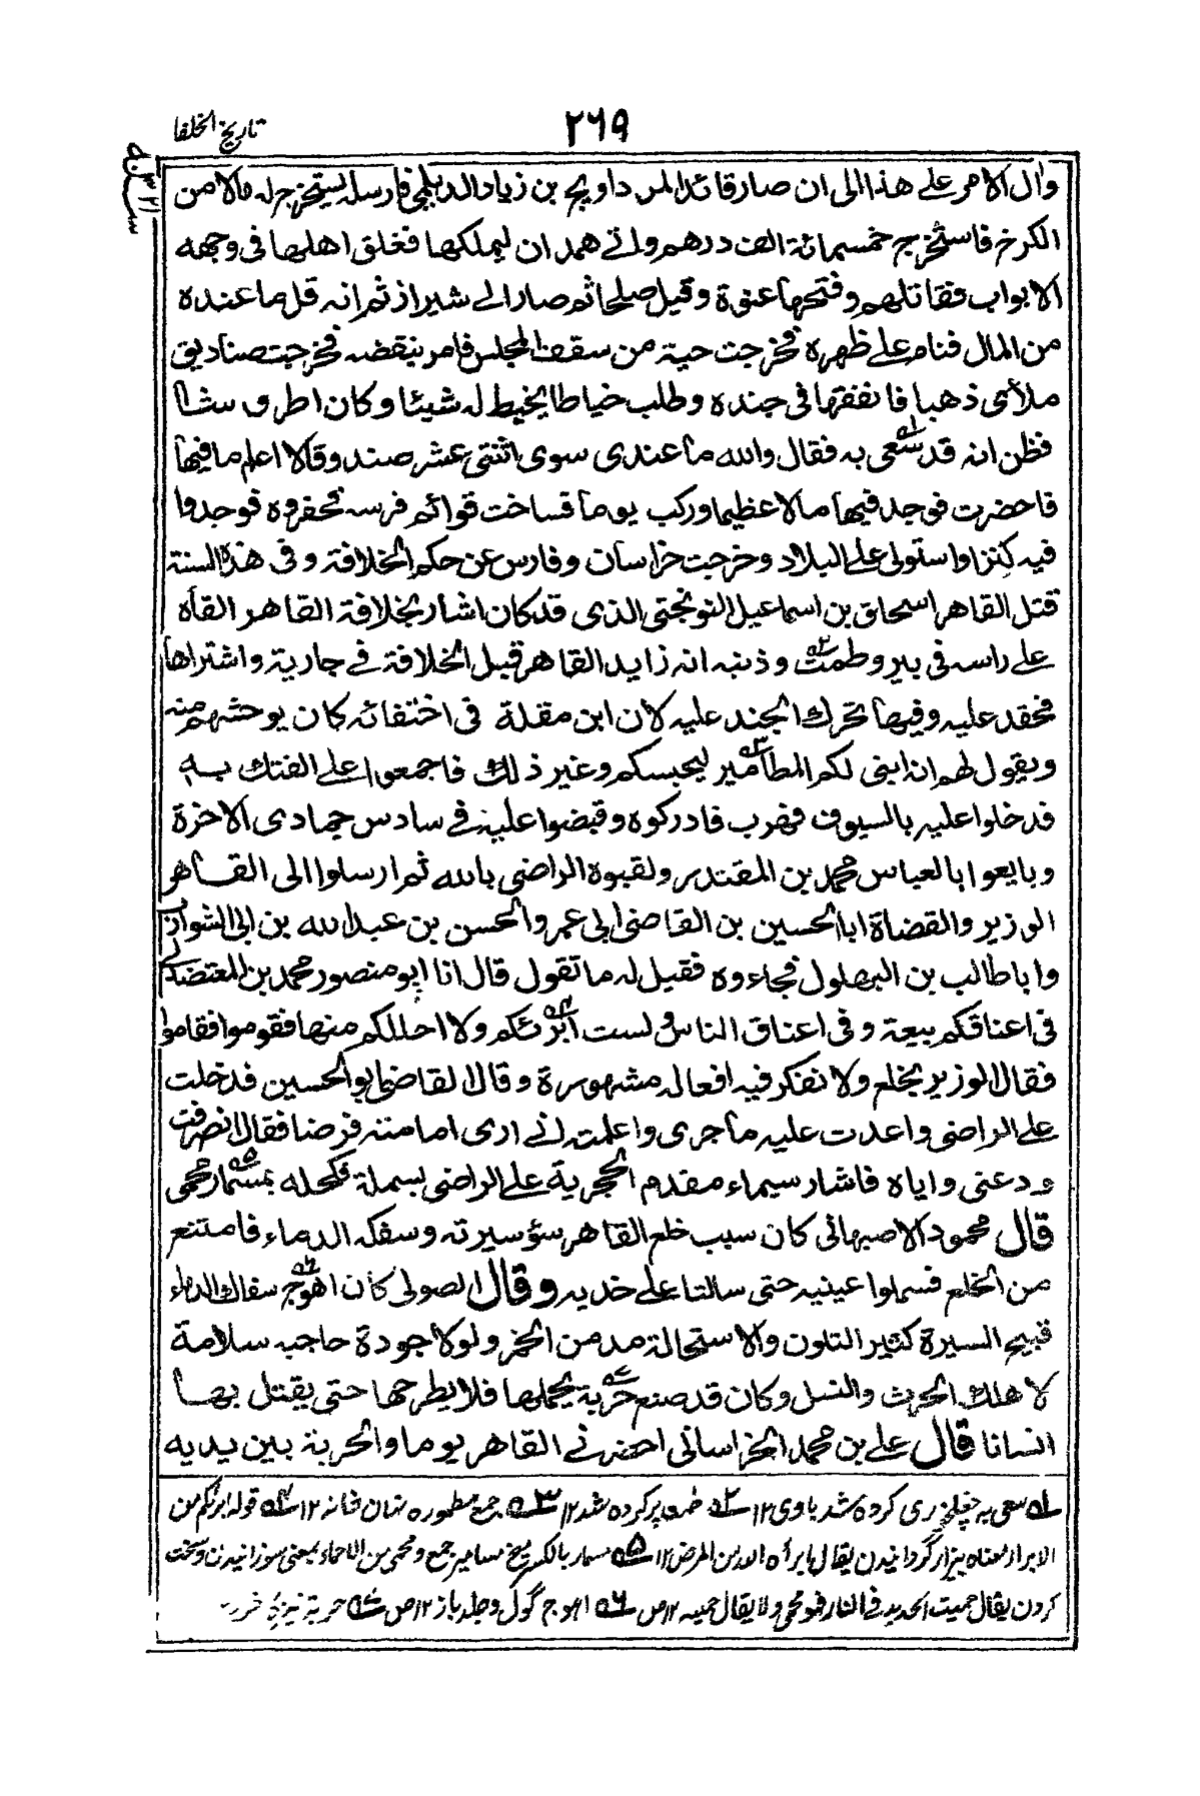 ٢٦٩
تاريخ الخلفا
وال الامر على هذا الى ان صار قائد المرداويج بن زياد الديلمى فارسله يستخرج له مالا من
الكرخ فاستخرج خمسمائة الف درهم واتى همدان ليملكها فغلق اهلها فى وجهه
الابواب فقاتلهم وفتحها عنوة وقيل صلحا ثم صار الى شيراز ثم انه قل ما عنده
من المال فنام على ظهره فخرجت حية من سقف المجلس فامر بنقضه فخرجت صناديق
ملأى ذهبا فانفقها فى جنده وطلب خياطا يخيط له شيئا وكان اطروشا
فظن انه قد سعى به فقال والله ما عندى سوى اثنتى عشر صندوقا لا اعلم ما فيها
فاحضرت فوجد فيها مالا عظيما وركب يوما فساخت قوائم فرسه فحفروه فوجدوا
فيه كنزا واستولى على البلاد وخرجت خراسان وفارس عن حكم الخلافة وفى هذه السنة
قتل القاهر اسحاق بن اسماعيل النوبختى الذى قد كان اشار بخلافة القاهر القاه
على راسه فى بير وطمت وذنبه انه زايد القاهر قبل الخلافة فى جارية واشتراها
فحقد عليه وفيها تحرك الجند عليه لان ابن مقلة فى اختفائه كان يوحشهم منه
ويقول لهم انه ابنى لكم المطامير ليحبسكم وغير ذلك فاجمعوا على الفتك به
فدخلوا عليه بالسيوف فهرب فادركوه وقبضوا عليه فى سادس جمادى الاخرة
وبايعوا ابا العباس محمد بن المقتدر ولقبوه الراضى بالله ثم ارسلوا الى القاهر
الوزير والقضاة ابا الحسين بن القاضى ابى عمر والحسن بن عبدالله بن ابى الشوارب
وابا طالب بن البهلول فجاءوه فقيل له ما تقول قال انا ابو منصور محمد بن المعتضد لى
فى اعناقكم بيعة وفى اعناق الناس ولست ابرئكم ولا احللكم منها فقوموا فقاموا
فقال الوزير يخلع ولا نفكر فيه افعاله مشهورة وقال القاضى ابو الحسين فدخلت
على الراضى واعدت عليه ما جرى واعلمته انى ارى امامته فرضا فقال انصرف
ودعنى واياه فاشار سيماء مقدم الحجرية على الراضى بسملة فكحله بمسمار محمى
قال محمود الاصبهانى كان سبب خلع القاهر سؤ سيرته وسفكه الدماء فامتنع
من الخلع فسملوا عينيه حتى سالتا على خديه وقال الصولى كان اهوج سفاك الدماء
قبيح السيرة كثير التلون والاستحالة مدمن الخمر ولولا جودة حاجبه سلامة
لاهلك الحرث والنسل وكان قد صنع حربة يحملها فلا يطرحها حتى يقتل بها
انسانا قال على بن محمد الخراسانى احضرنى القاهر يوما والحربة بين يديه
له سعى به چغلخورى كرده شد باوى ١٢ ٢ه طمت پر كرده شد ١٢ ٣ه جمع مطموره نهان خانه ١٢ ٤ه قوله ابرئكم من
الابراء معناه بيزار گردانيدن يقال ابرأه الدين المرض ١٢ ٥ه مسمار بالكسر ميخ مسامير جمع ومحمى من الاحماء بمعنى سوزانيدن وسخت
كردن يقال حميت الحديد فى النار فهو محمى ولا يقال حميه ١٢ ص ٦ه اهوج گول وجلد باز ١٢ ص ٧ه حربة نيزه خرد